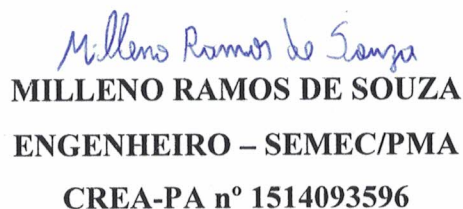 Milleno Ramos de Souza
MILLENO RAMOS DE SOUZA
ENGENHEIRO – SEMEC/PMA
CREA-PA nº 1514093596